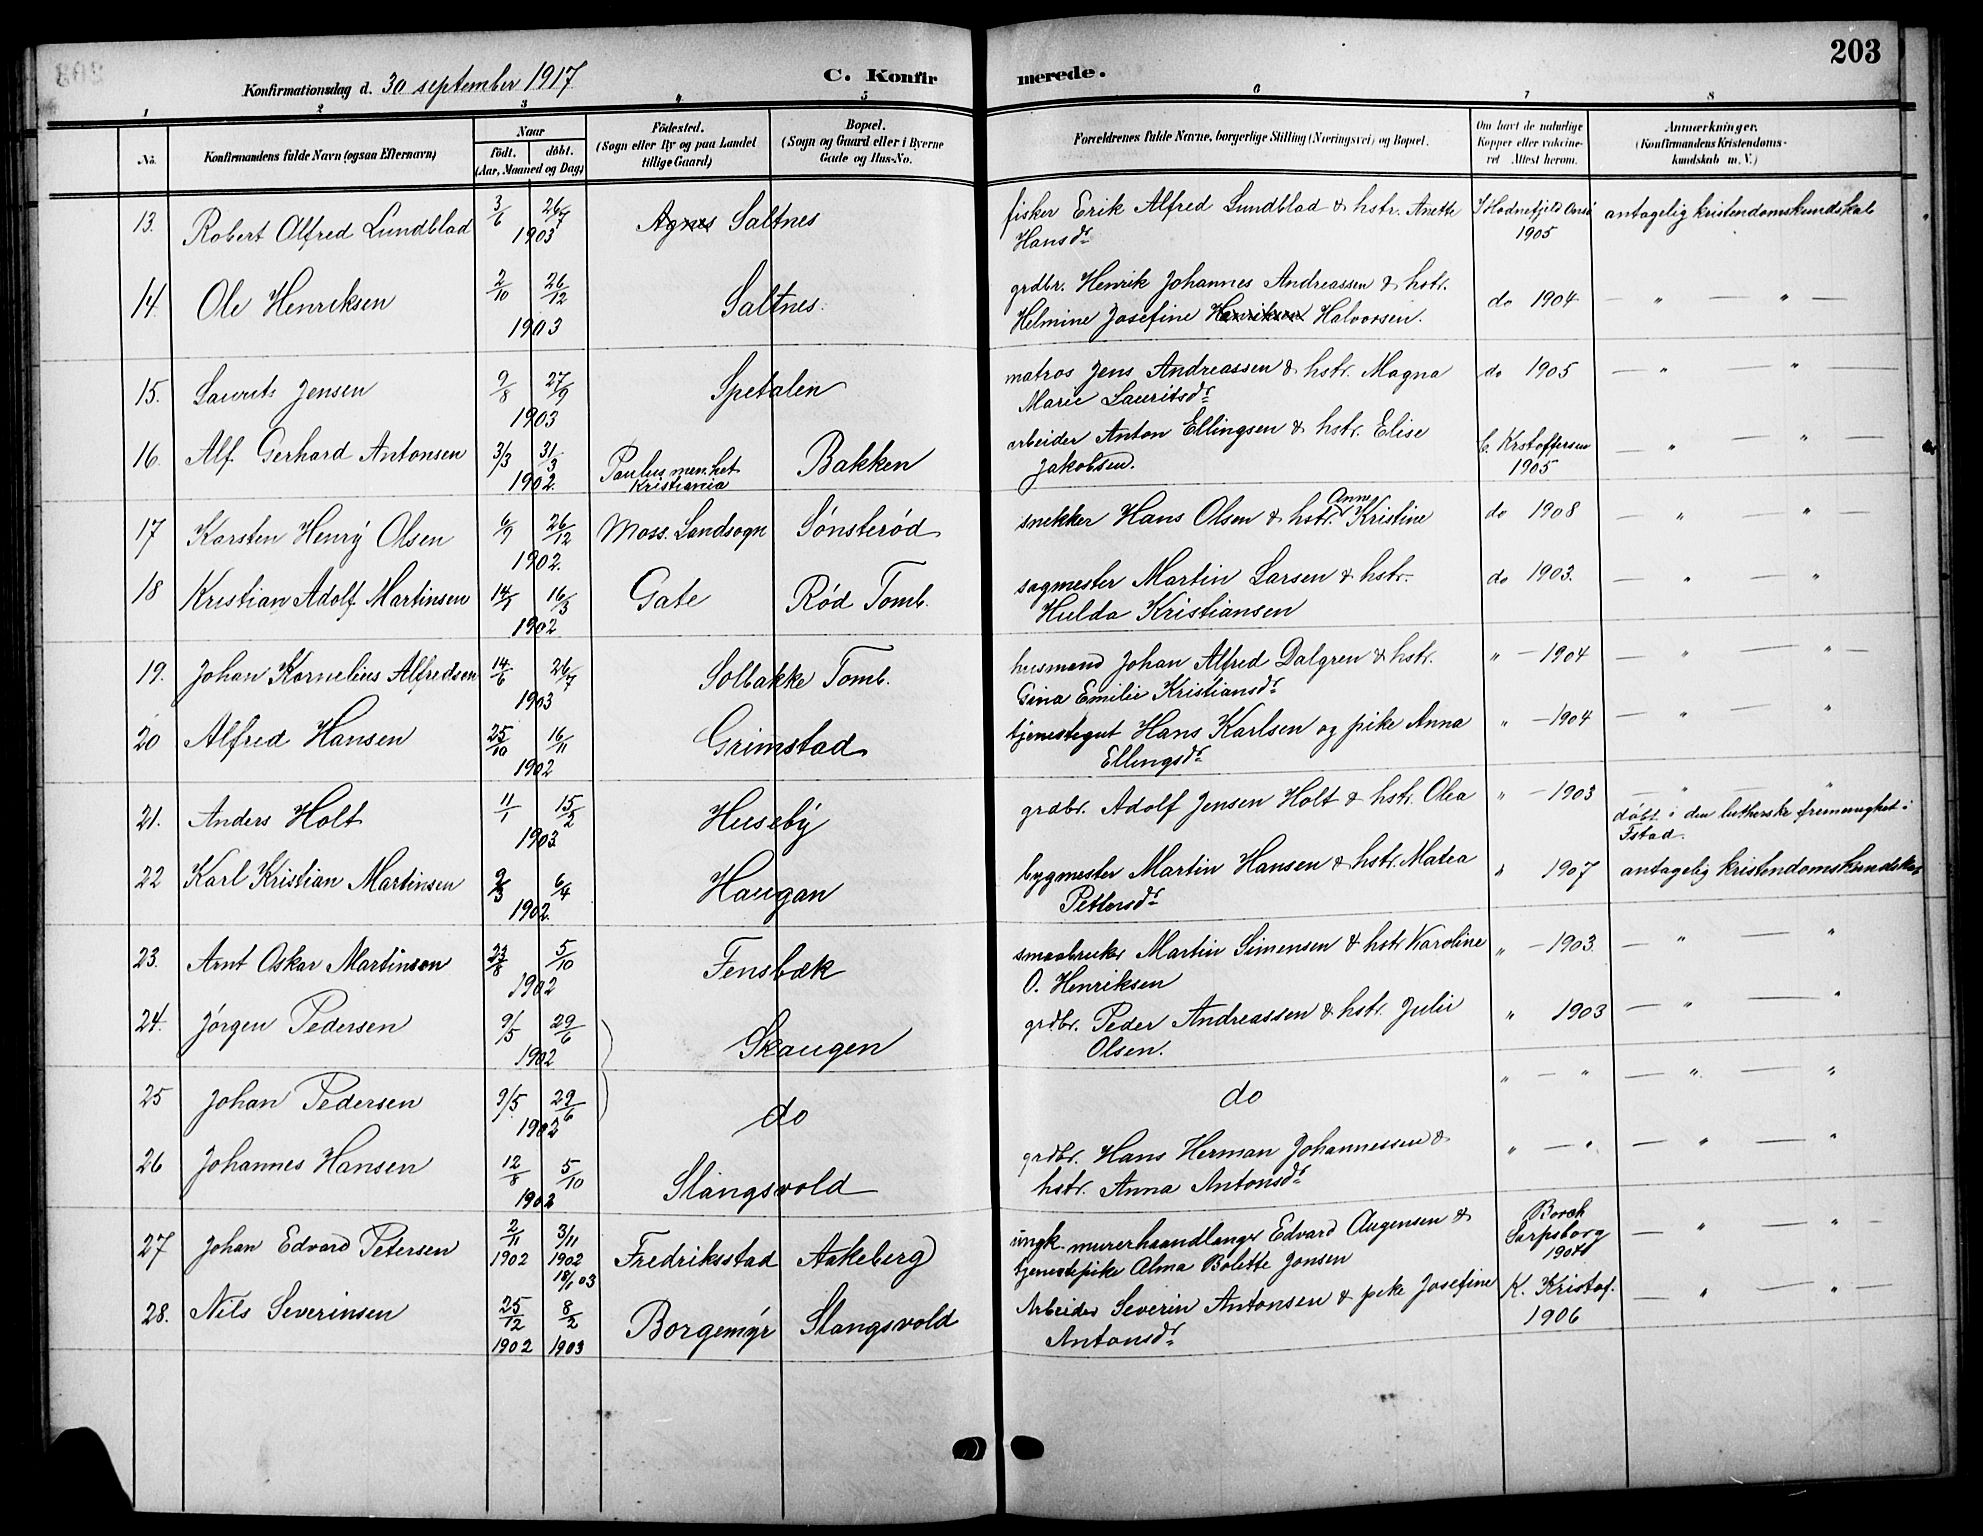 203
Konfirmationsdag d. 30 september 1917
C. Konfirmerede.
1 2 3 4 5 6 7 8
No.
Konfirmandens fulde Navn (ogsaa Efternavn)
Naar
födt. döbt.
(Aar, Maaned og Dag)
Födested.
(Sogn eller By og paa Landet
tillige Gaard)
Bopæl.
(Sogn og Gaard eller i Byerne
Gade og Hus-No.
Forældrenes fulde Navne, borgerlige Stilling (Næringsvei) og Bopæl.
Om havt de naturlige
Kopper eller vakcine-
ret Attest herom.
Anmærkninger.
(Konfirmandens Kristendoms-
kundskab m. V.)
13. Robert Alfred Lundblad 3/6 26/7 1903 Agnes Saltnes fisker Erik Alfred Lundblad & hstr. Anette
Hansdr. J Hodnefjeld Onsø 1905 antagelig kristendomskundskab
14. Ole Henriksen 2/10 26/12 1903 Saltnes. grdbr. Henrik Johannes Andreassen & hstr.
Helmine Josefine Henriksen Halvorsen. do 1904 — " — " —
15. Laurits Jensen 9/8 27/9 1903 Spetalen matros Jens Andreassen & hstr. Magna
Marie Lauritsdr. do 1905 — " — "
16. Alf. Gerhard Antonsen 3/3 31/3 1902. Paulus menhet
Kristiania Bakken arbeider Anton Ellingsen & hstr. Elise
Jakobsen. C. Krstoffersen 1905 — " — " —
17 Karsten Henry Olsen 6/9 26/12 1902. Moss. Landsogn Sønsterød snekker Hans Olsen & hstr. Anne Kristine do 1908 — " — " —
18 Kristian Adolf Martinsen 14/1 16/3 1902 Gate Rød Tomb. sagmester Martin Larsen & hstr.
Hulda Kristiansen do 1903. — " — "
19. Johan Kornelius Alfredsen 14/6 26/7 1903 Solbakke Tomb. husmand Johan Alfred Dalgren & hstr.
Gina Emilie Kristiansdr. " — 1904 — " — " —
20 Alfred Hansen 25/10 16/11 1902 Grimstad tjenestegut Hans Karlsen og pike Anna
Ellingsdr. " — 1904 — " — "
21. Anders Holt 11/1 15/2 1903 Huseby grdbr. Adolf Jensen Holt & hstr. Olea " — 1903 — " — "
døbt i den lutherske frimenighet i
Fstad.
22 Karl Kristian Martinsen 2/3 6/4 1902. Haugan bygmester Martin Hansen & hstr. Matea
Pettersdr. " 1907 antagelig kristendomskundskab
23. Arnt Oskar Martinsen 23/8 5/10 1902 Fensbæk smaabruker Martin Simensen & hstr Karoline
O. Henriksen " — 1903. — " — "
24. Jørgen Pedersen 9/5 29/6 1902 Skaugen grdbr. Peder Andreassen & hstr. Julie
Olsen. " 1903 — " — "
25 Johan Pedersen 9/5 29/6 1902 do do " — " — " — "
26 Johannes Hansen 12/8 5/10 1902 Slangsvold grdbr. Hans Herman Johannessen &
hstr. Anna Antonsdr. " — " — " — "
27 Johan Edvard Petersen 2/11 1902 3/11 1902 18/1 03 Fredriksstad Aakeberg ungk. murerhaandlanger Edvard Augensen &
tjenestepike Alma Bolette Jonsen Borch
Sarpsborg
1904 — " — " —
28. Nils Severinsen 25/12 1902 8/2 1903 Borgemyr Slangsvold Arbeider Severin Antonsen & pike Josefine
Antonsdr. K. Kristof.
1906 — " — " —